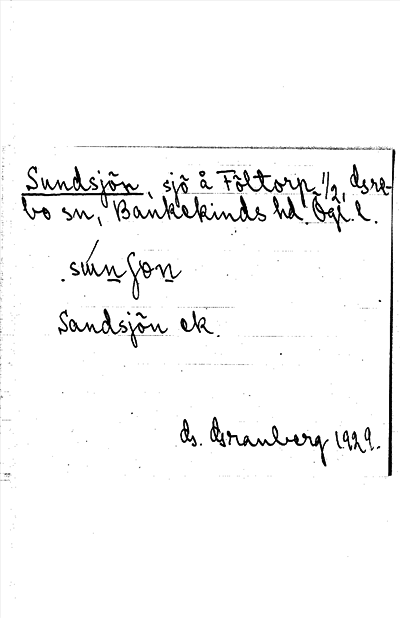 Sundsjön, sjö åFöltorp 1/2, Gsre-
bo sn, Bankekinds hd. Ögl. l.
Sandsjön ek.
G. Granberg 1929.